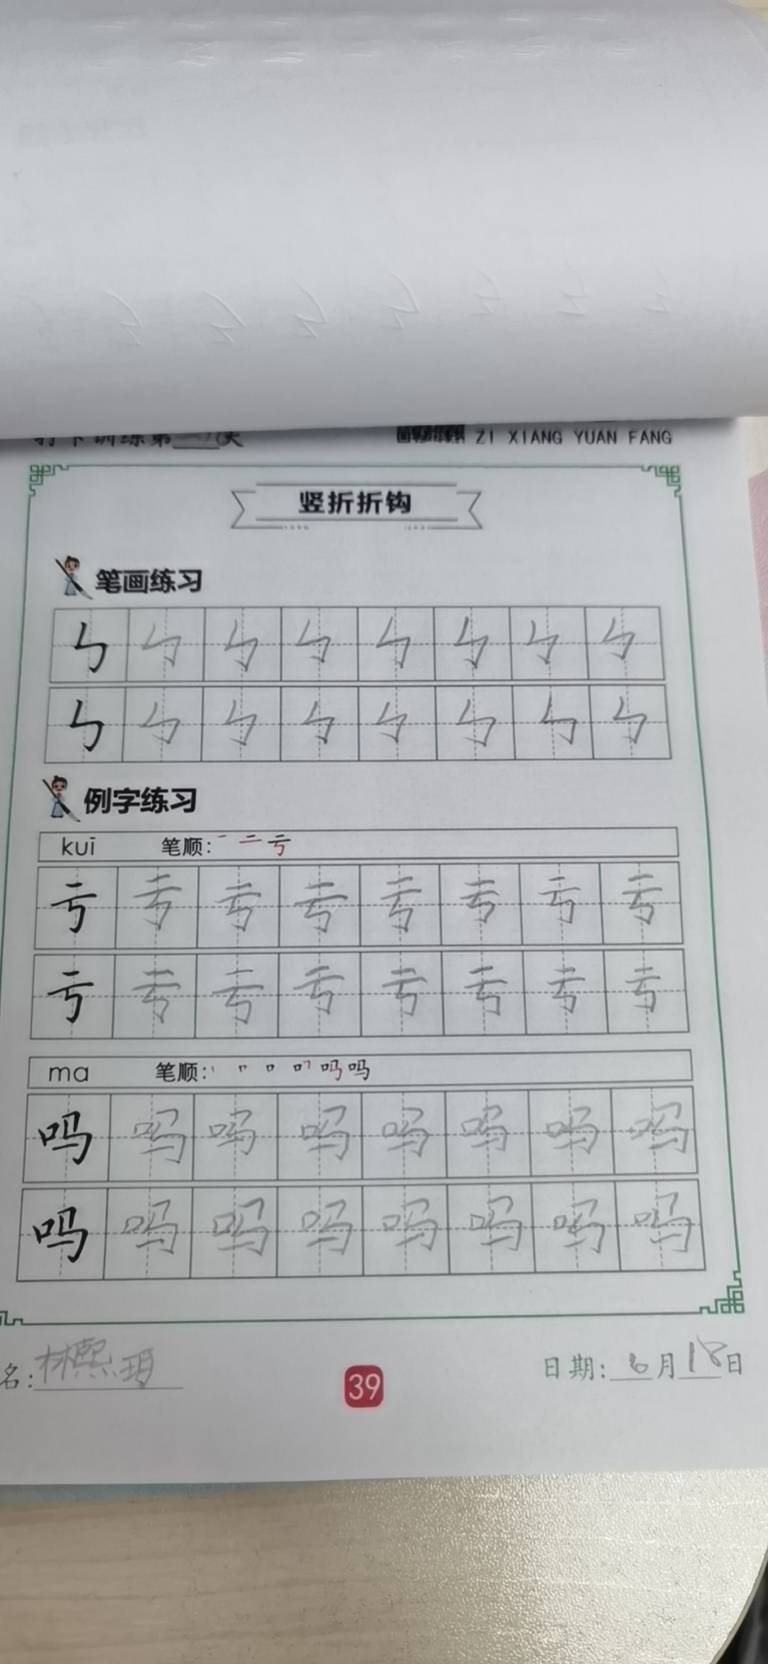 打卡训练第 天
ZI XIANG YUAN FANG
竖折折钩
笔画练习
例字练习
kuī 笔顺: 一 二 亏
亏 亏 亏 亏 亏 亏 亏 亏
亏 亏 亏 亏 亏 亏 亏 亏
ma 笔顺: 吗 吗
吗 吗 吗 吗 吗 吗 吗 吗
吗 吗 吗 吗 吗 吗 吗 吗
名: 林熙玥 39 日期: 6月18日